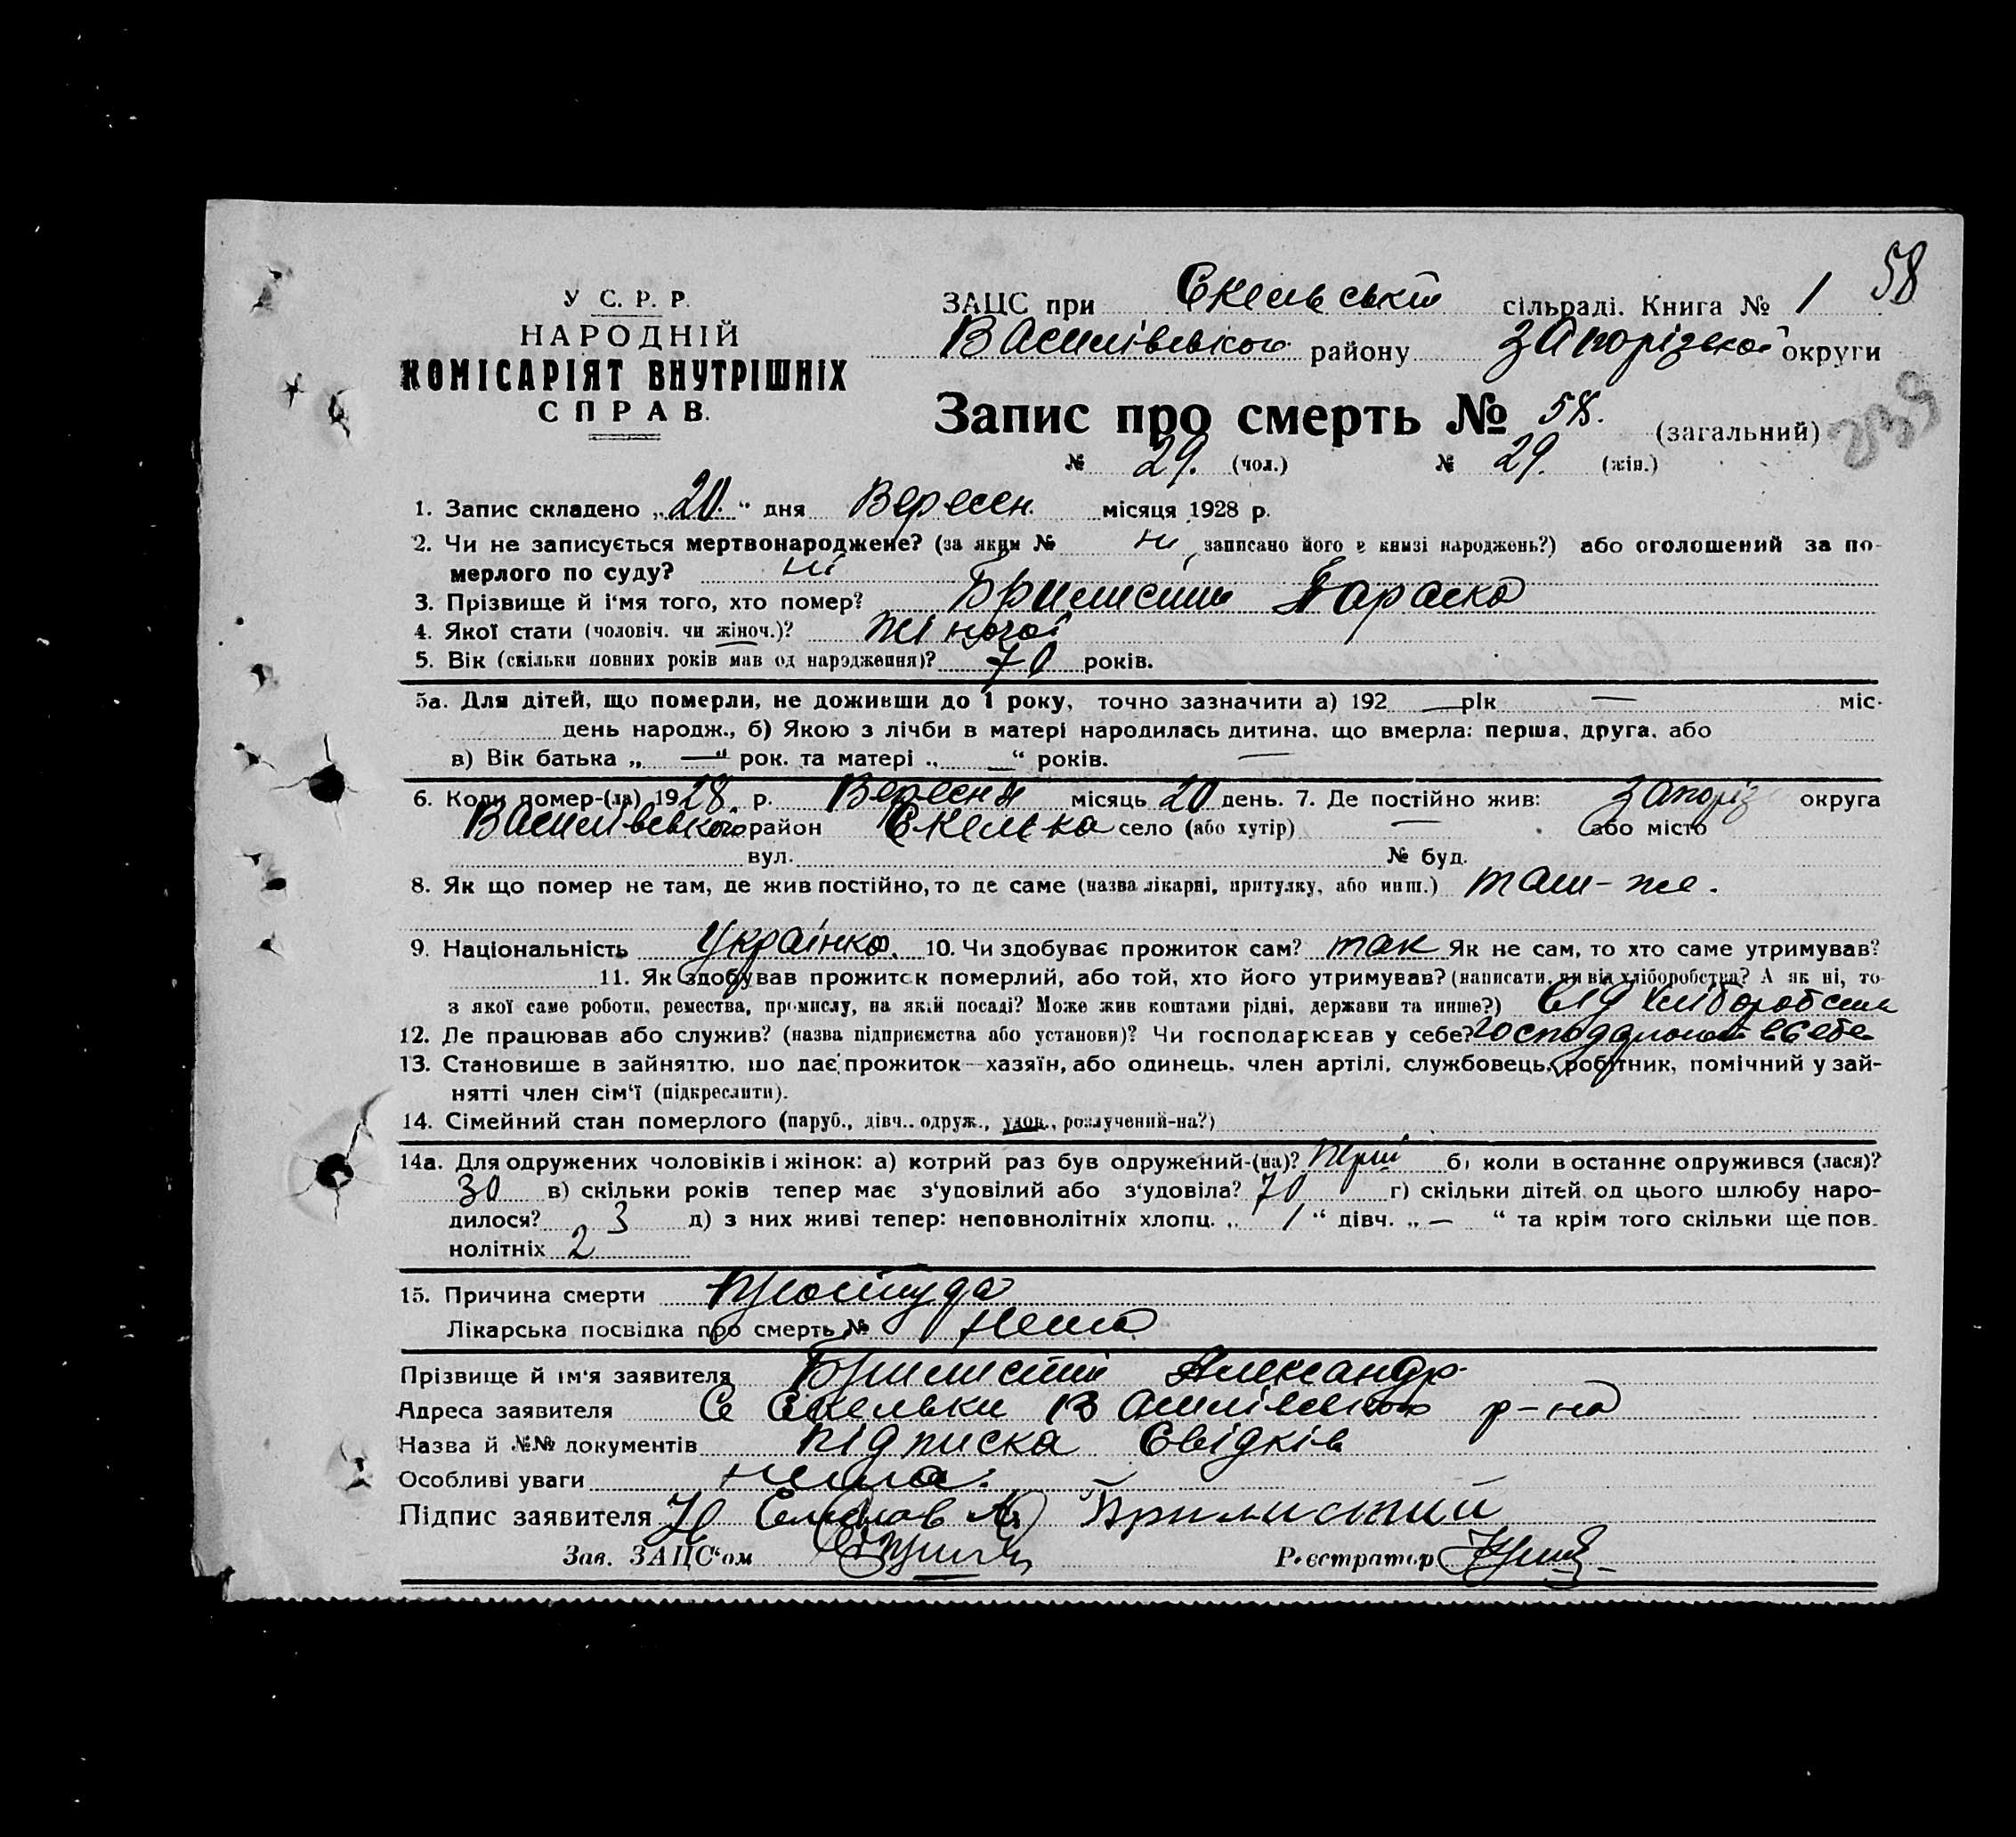 58
У С. Р. Р.
НАРОДНІЙ
КОМІСАРІЯТ ВНУТРІШНІХ
СПРАВ.
ЗАЦС при Скельській сільраді. Книга № 1
Василівської району Запорізської округи
Запис про смерть № 58. (загальний)
№ 29. (чол.) № 29. (жін.)
1. Запис складено „20.“ дня Вересен. місяця 1928 р.
2. Чи не записується мертвонароджене? (за яким № ні записано його в книзі народжень?) або оголошений за по-
мерлого по суду? ні
3. Прізвище й і'мя того, хто помер? Брилистий Параска
4. Якої стати (чоловіч. чи жіноч.)? жіночої
5. Вік (скільки повних років мав од народження)? 70 років.
5а. Для дітей, що померли, не доживши до 1 року, точно зазначити а) 192 — рік — міс.
день народж., б) Якою з лічби в матері народилась дитина, що вмерла: перша, друга, або
в) Вік батька „ — “ рок. та матері „ — “ років. —
6. Коли помер-(ла) 1928. р. Вересня місяць 20 день. 7. Де постійно жив: Запоріз округа
Василівського район Скелька село (або хутір) — або місто
вул. № буд.
8. Як що помер не там, де жив постійно, то де саме (назва лікарні, притулку, або инш.) там-же.
9. Національність Українка. 10. Чи здобуває прожиток сам? так Як не сам, то хто саме утримував?
11. Як здобував прожиток померлий, або той, хто його утримував? (написати, чи від хліборобства? А як ні, то
з якої саме роботи, ремества, промислу, на якій посаді? Може жив коштами рідні, держави та инше?) від хліборобства
12. Де працював або служив? (назва підприємства або установи)? Чи господарював у себе? в себе
13. Становише в зайняттю, що дає прожиток—хазяїн, або одинець, член артілі, службовець, робітник, помічний у зай-
нятті член сім'ї (підкреслити).
14. Сімейний стан померлого (паруб., дівч., одруж., удов., розлучений-на?)
14а. Для одружених чоловіків і жінок: а) котрий раз був одружений-(на)? перш б) коли в останнє одружився (лася)?
30 в) скільки років тепер має з'удовілий або з'удовіла? 70 г) скільки дітей од цього шлюбу наро-
дилося? 3 д) з них живі тепер: неповнолітніх хлопц. „ 1 “ дівч. „ — “ та крім того скільки ще пов-
нолітніх 2
15. Причина смерти простуда
Лікарська посвідка про смерть № нема
Прізвище й ім'я заявителя Брилистий Александр
Адреса заявителя С Скельки Василівського р-на
Назва й №№ документів підписка Свідків
Особливі уваги нема.
Підпис заявителя Брилистий
Зав. ЗАЦС'ом Реєстратор